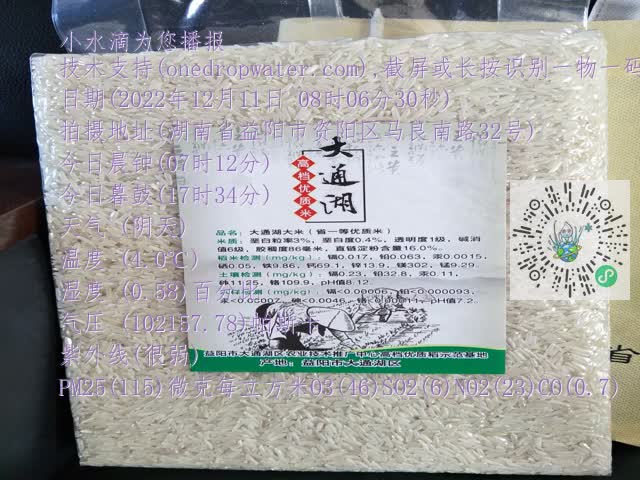 小水滴为您播报
技术支持(onedropwater.com),截屏或长按识别一物一码
日期(2022年12月11日 08时06分30秒)
拍摄地址(湖南省益阳市资阳区马良南路32号)
今日晨钟(07时12分)
今日暮鼓(17时34分)
天气 (阴天)
温度 (4.0℃)
湿度 (0.58)百分
气压 (102157.78)帕斯卡
紫外线(很弱)
PM25(115)微克每立方米O3(46)SO2(6)NO2(23)CO(0.7)
大通湖
高档优质米
品名：大通湖大米（省一等优质米）
米质：垩白粒率3%，垩白度0.4%，透明度1级，碱消
值6级，胶稠度86毫米，直链淀粉含量16.0%。
稻米检测(mg/kg)：镉0.017，铅0.063，汞0.0015，
硒0.05，铁9.86，钙69.1，锌13.9，镁302，锰9.29。
土壤检测(mg/kg)：镉0.23，铅32.8，汞0.11，
砷11.25，铬109.9，pH值8.12。
检测(mg/kg)：镉<0.00006，铅<0.000093，
汞<0.00007，砷<0.0046，铬<0.00011，pH值7.2。
益阳市大通湖区农业技术推广中心高档优质稻示范基地
产地：益阳市大通湖区
省